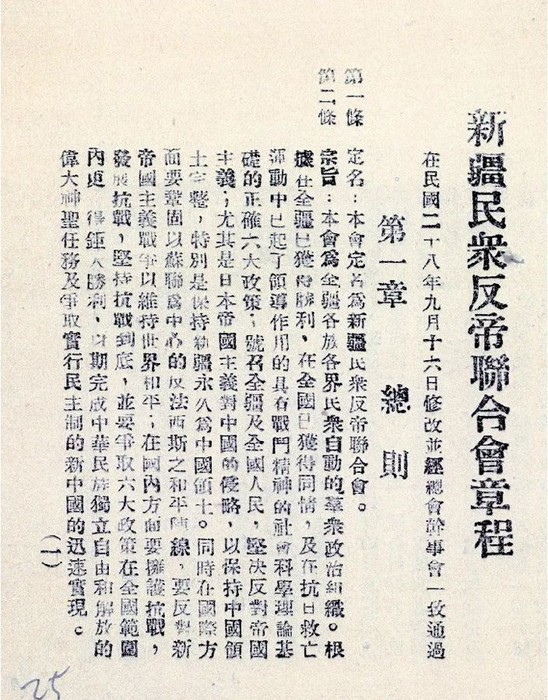 新疆民衆反帝聯合會章程
在民國二十八年九月十六日修改並經總會幹事會一致通過
第一章 總則
第一條 定名：本會定名爲新疆民衆反帝聯合會。
第二條 宗旨：本會爲全疆各族各界民衆自動的羣衆政治組織。根
據在全疆已獲得勝利，在全國已獲得同情，及在抗日救亡
運動中已起了領導作用的具有戰鬥精神的社會科學理論基
礎的正確六大政策，號召全疆及全國人民，堅決反對帝國
主義；尤其是日本帝國主義對中國的侵略，以保持中國領
土完整，特別是保持新疆永久爲中國領土。同時在國際方
面要鞏固以蘇聯爲中心的反法西斯之和平陣線，要反對新
帝國主義戰爭以維持世界和平；在國內方面要擁護抗戰，
發展抗戰，堅持抗戰到底，並要爭取六大政策在全國範圍
內更得鉅大勝利，以期完成中華民族獨立自由和解放的
偉大神聖任務及爭取實行民主制的新中國的迅速實現。
(一)
25